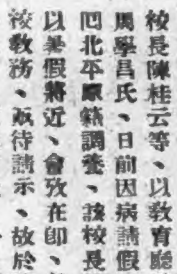 校長陳桂云等、以敎育廳
馬學昌氏、日前因病請假
回北平原籍調養、該校長
以暑假將近、會攷在卽、
校敎務、亟待請示、故於